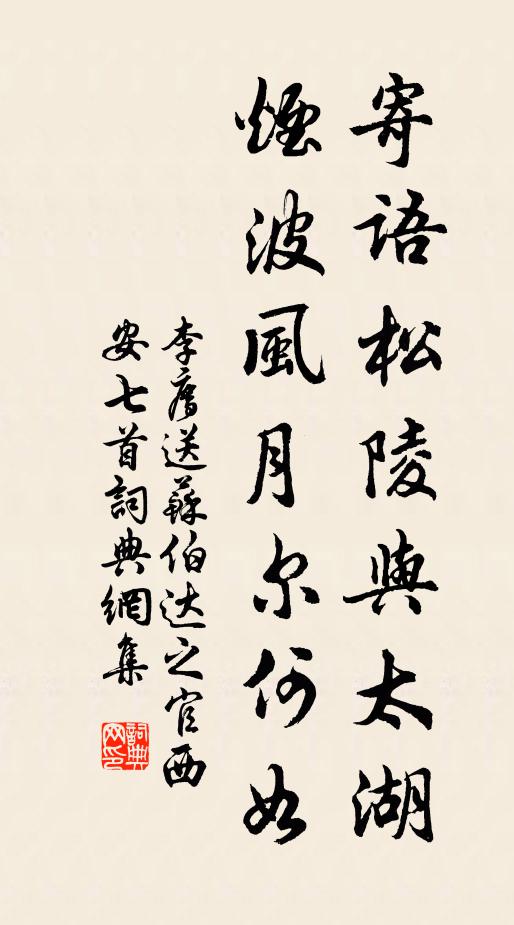 寄語松陵與太湖
煙波風月尔何如
李廌送蘇伯达之官西
安七首詞典網集
詞典
网印